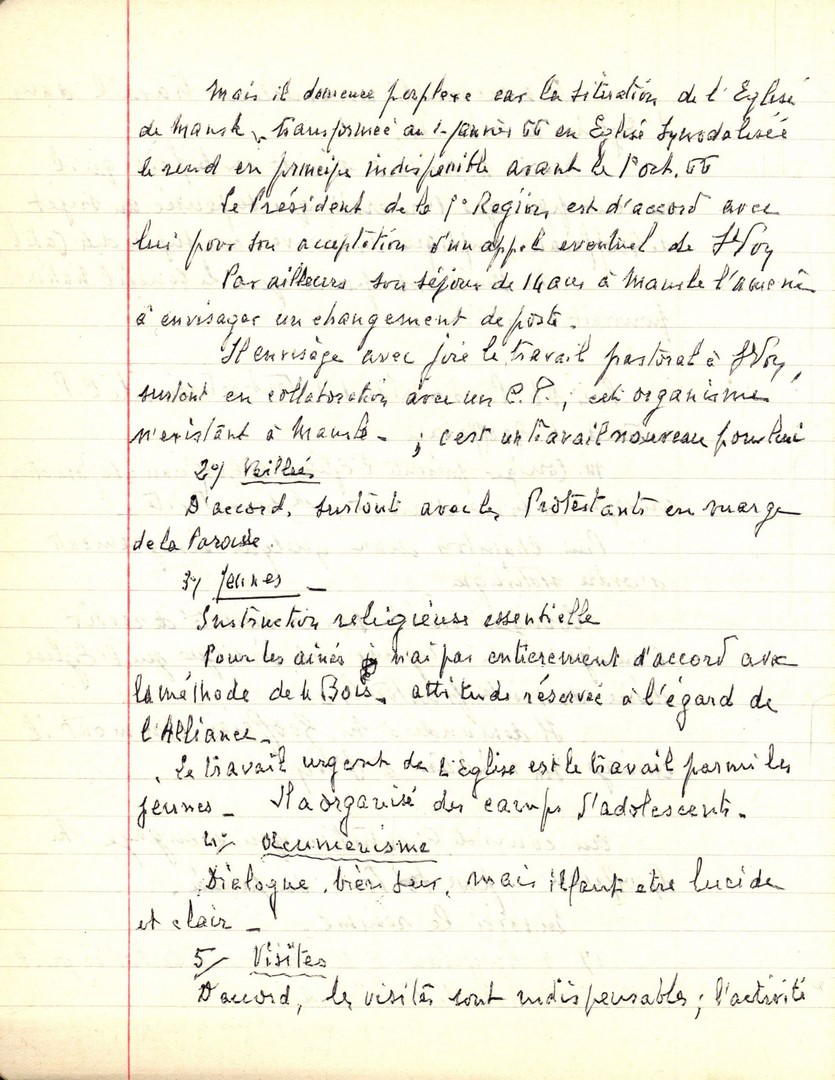 Mais il demeure perplexe car la situation de l'Eglise
de Mansle, transformée au 1° Janvier 66 en Eglise Synodalisée
le rend en principe indisponible avant le 1° oct. 66
Le Président de la Région est d'accord avec
lui pour son acceptation d'un appel eventuel de St Voy
Par ailleurs son séjour de 14 ans à Mansle l'amène
à envisager un changement de poste.
Il envisage avec joie le travail pastoral à St Voy,
surtout en collaboration avec un C.P., cet organisme
n'existant à Mansle - ; c'est un travail nouveau pour lui
2°/ Veillées
D'accord, surtout avec les Protestants en marge
de la Paroisse.
3°/ Jeunes -
Instruction religieuse essentielle
Pour les ainés n'ai pas entierement d'accord avec
la méthode de attitude réservée à l'égard de
l'Alliance -
Le travail urgent de l'Eglise est le travail parmi les
jeunes - Il a organisé des camps d'adolescents.
4°/ Oecumenisme
Dialogue, bien sur, mais il faut etre lucide
et clair -
5/ Visites
D'accord, les visites sont indispensables ; l'activité